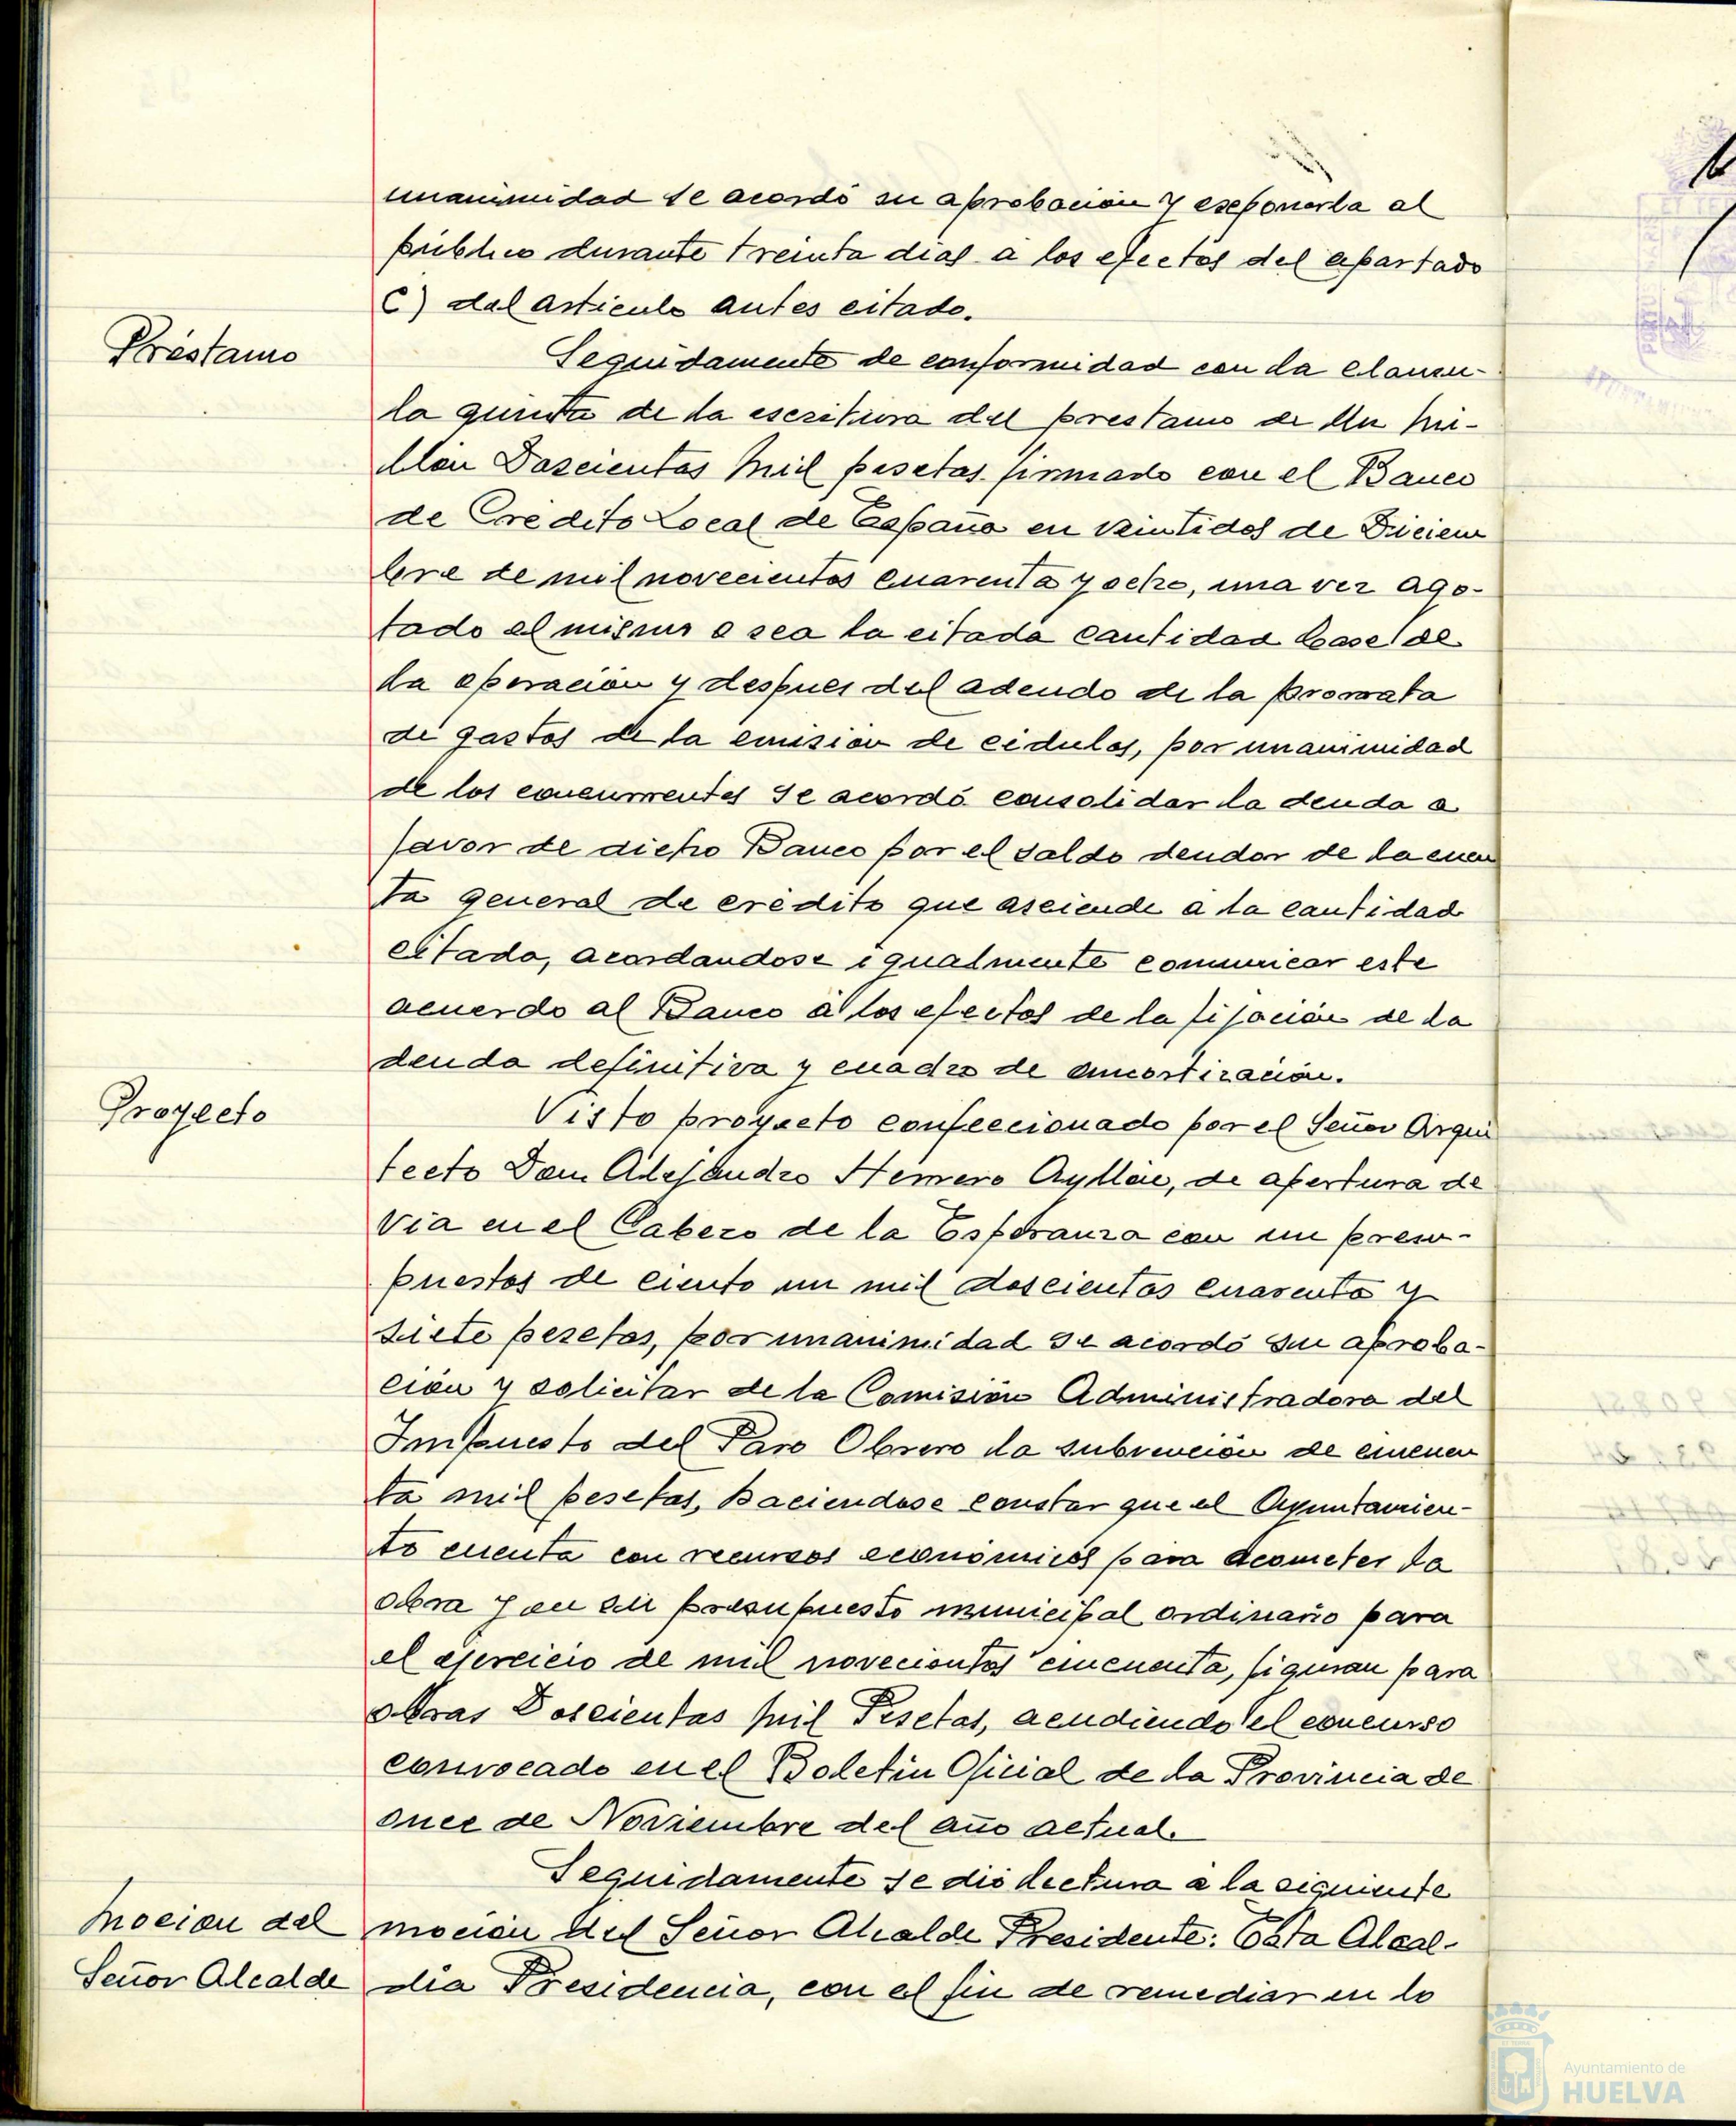 unanimidad se acordó su aprobación y exponerla al
público durante treinta dias a los efectos del apartado
c) del articulo antes citado.
Préstamo
Seguidamente de conformidad con la clausu-
la quinta de la escritura del prestamo de Un Mi-
llón Doscientas Mil pesetas firmado con el Banco
de Credito Local de España en veintidos de Diciem
bre de mil novecientos cuarenta y ocho, una vez ago-
tado el mismo o sea la citada cantidad base de
la operación y despues del adeudo de la prorrata
de gastos de la emision de cédulas, por unanimidad
de los concurrentes se acordó consolidar la deuda a
favor de dicho Banco por el saldo deudor de la cuen
ta general de crédito que asciende a la cantidad
citada, acordandose igualmente comunicar este
acuerdo al Banco a los efectos de la fijación de la
deuda definitiva y cuadro de amortización.
Proyecto
Visto proyecto confeccionado por el Señor Arqui
tecto Don Alejandro Herrero Ayllón, de apertura de
Via en el Cabezo de la Esperanza con un presu-
puestos de ciento un mil doscientas cuarenta y
siete pesetas, por unanimidad se acordó su aproba-
ción y solicitar de la Comisión Administradora del
Impuesto del Paro Obrero la subvención de cincuen
ta mil pesetas, haciendose constar que el Ayuntamien-
to cuenta con recursos económicos para acometer la
obra y en su presupuesto municipal ordinario para
el ejercicio de mil novecientos cincuenta, figuran para
obras Doscientas Mil Pesetas, acudiendo el concurso
convocado en el Boletin Oficial de la Provincia de
once de Noviembre del año actual.
Seguidamente se dió lectura a la siguiente
Mocion del
Señor Alcalde
moción del Señor Alcalde Presidente: Esta Alcal-
dia Presidencia, con el fin de remediar en lo
Ayuntamiento de
HUELVA